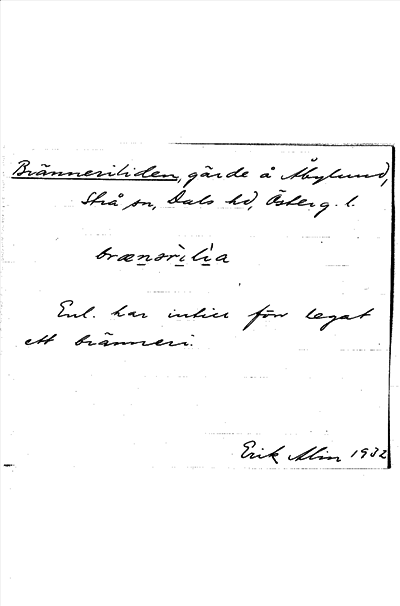 Bränneriliden, gärde å Åbylund,
Strå sn, Dals hd, Österg. l.
brænəri̱li̱a
Enl. har intill förr legat
ett bränneri.
Erik Alin 1932